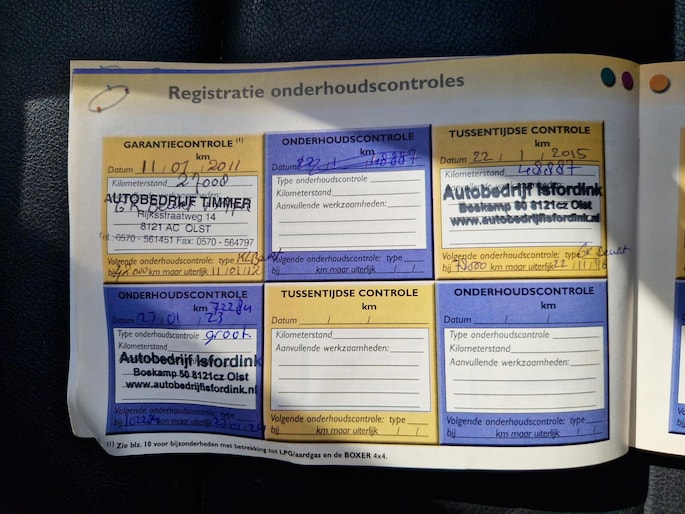 Registratie onderhoudscontroles
GARANTIECONTROLE (1)
km
Datum 11, 07, 2011
Kilometerstand 27008
AUTOBEDRIJF TIMMER
Rijksstraatweg 14
8121 AC OLST
Tel.: 0570 - 561451 Fax: 0570 - 564797
Volgende onderhoudscontrole: type
bij km maar uiterlijk 11, 01, 12
ONDERHOUDSCONTROLE
km
Datum 22, 1, 48887
Type onderhoudscontrole
Kilometerstand
Aanvullende werkzaamheden:
Volgende onderhoudscontrole: type
bij km maar uiterlijk / /
TUSSENTIJDSE CONTROLE
km
Datum 22, 1, 2015
Kilometerstand 48887
Autobedrijf Isfordink
Boskamp 50 8121cz Olst
www.autobedrijfisfordink.nl
Volgende onderhoudscontrole: type
bij km maar uiterlijk 22
ONDERHOUDSCONTROLE
km 72284
Datum 27, 01, 23
Type onderhoudscontrole groot
Kilometerstand
Autobedrijf Isfordink
Boskamp 50 8121cz Olst
www.autobedrijfisfordink.nl
Volgende onderhoudscontrole: type
bij 102284 km maar uiterlijk 27, 01, 24
TUSSENTIJDSE CONTROLE
km
Datum / /
Kilometerstand
Aanvullende werkzaamheden:
Volgende onderhoudscontrole: type
bij km maar uiterlijk / /
ONDERHOUDSCONTROLE
km
Datum / /
Type onderhoudscontrole
Kilometerstand
Aanvullende werkzaamheden:
Volgende onderhoudscontrole: type
bij km maar uiterlijk / /
(1) Zie blz. 10 voor bijzonderheden met betrekking tot LPG/aardgas en de BOXER 4x4.